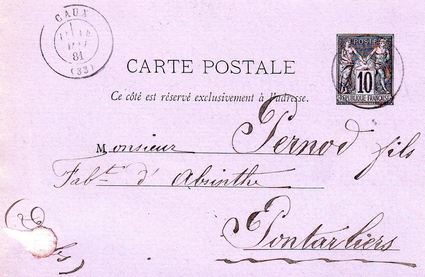 CAUX
81
(33)
POSTE
10
RÉPUBLIQUE FRANÇAISE
CARTE POSTALE
Ce côté est réservé exclusivement à l'adresse.
Monsieur Pernod fils
Fabt d'Absinthe
Pontarliers